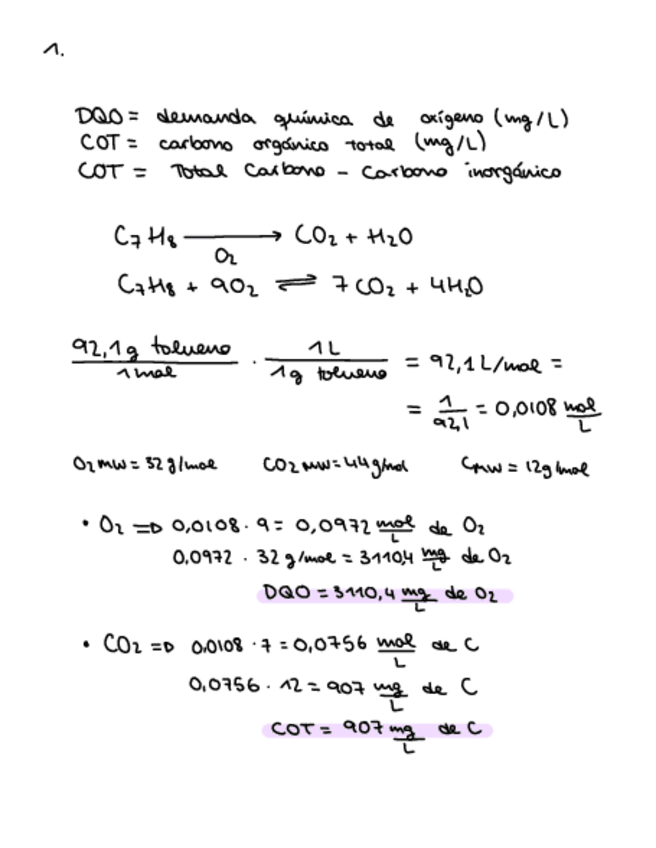 1.
DQO = demanda química de oxígeno (mg/L)
COT = carbono orgánico total (mg/L)
COT = Total Carbono - Carbono inorgánico
C₇H₈ ⟶ CO₂ + H₂O
O₂
C₇H₈ + 9O₂ ⇌ 7CO₂ + 4H₂O
92,1g tolueno / 1mol · 1L / 1g tolueno = 92,1 L/mol =
= 1 / 92,1 = 0,0108 mol/L
O₂ MW = 32 g/mol CO₂ MW = 44 g/mol C MW = 12g/mol
• O₂ ⇒ 0,0108 · 9 = 0,0972 mol/L de O₂
0,0972 · 32 g/mol = 3110,4 mg/L de O₂
DQO = 3110,4 mg/L de O₂
• CO₂ ⇒ 0,0108 · 7 = 0,0756 mol/L de C
0,0756 · 12 = 907 mg/L de C
COT = 907 mg/L de C